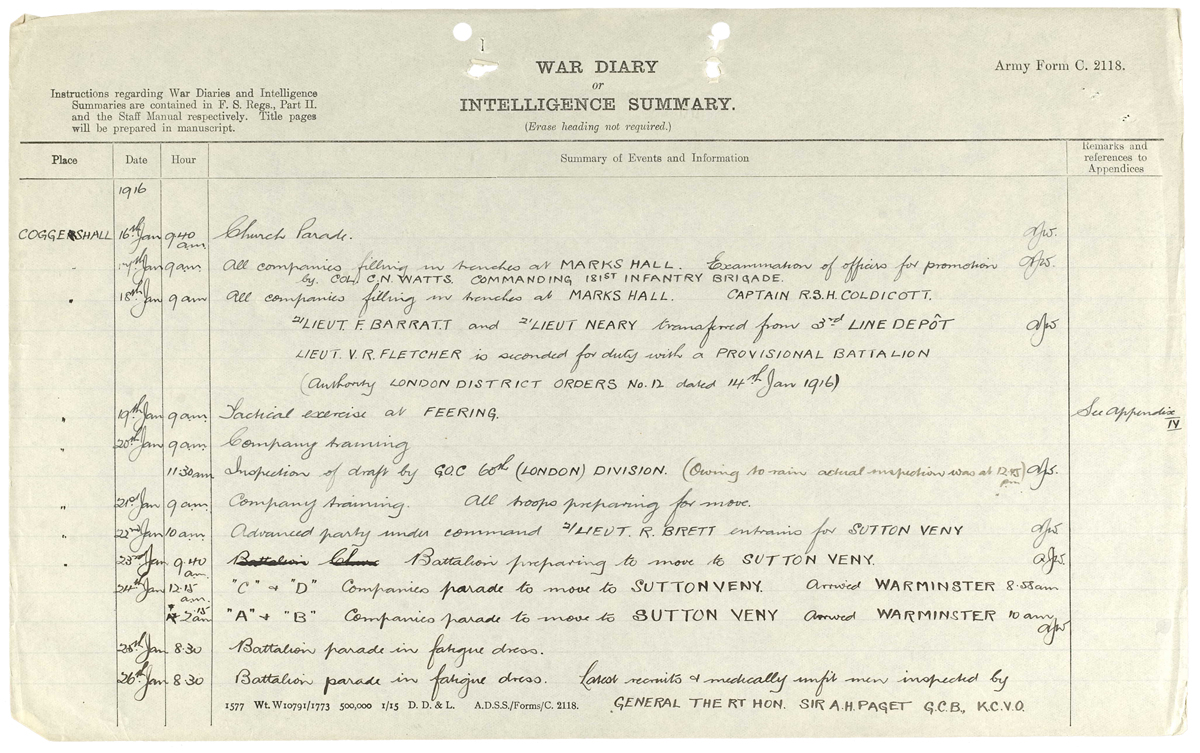 WAR DIARY
or
INTELLIGENCE SUMMARY.
(Erase heading not required.)
Army Form C. 2118.
Instructions regarding War Diaries and Intelligence
Summaries are contained in F. S. Regs., Part II.
and the Staff Manual respectively. Title pages
will be prepared in manuscript.
Place Date Hour Summary of Events and Information Remarks and references to Appendices
1916
COGGESHALL 16th Jan 9.40 am. Church Parade.
" 17th Jan 9 am. All companies filling in trenches at MARKS HALL. Examination of officers for promotion
by COL. C.N. WATTS. COMMANDING 181ST INFANTRY BRIGADE.
" 18th Jan 9 am All companies filling in trenches at MARKS HALL. CAPTAIN R.S.H. COLDICOTT.
2/LIEUT. F. BARRATT and 2/LIEUT NEARY transferred from 3rd LINE DEPÔT
LIEUT. V. R. FLETCHER is seconded for duty with a PROVISIONAL BATTALION
(Authority LONDON DISTRICT ORDERS No. 12 dated 14th Jan 1916)
" 19th Jan 9 am. Tactical exercise at FEERING. See Appendix IV
" 20th Jan 9 am. Company training
11.30am Inspection of draft by GOC 60th (LONDON) DIVISION. (Owing to rain actual inspection was at 12.45 pm)
" 21st Jan 9 am. Company training. All troops preparing for move.
" 22nd Jan 10 am. Advanced party under command 2/LIEUT. R. BRETT entrains for SUTTON VENY
" 23rd Jan 9.40 am. Battalion Battalion preparing to move to SUTTON VENY.
24th Jan 12.15 am. "C" & "D" Companies parade to move to SUTTON VENY. Arrived WARMINSTER 8.58am
2.15 am "A" & "B" Companies parade to move to SUTTON VENY Arrived WARMINSTER 10 am
25th Jan 8.30 Battalion parade in fatigue dress.
26th Jan 8.30 Battalion parade in fatigue dress. Latest recruits & medically unfit men inspected by
GENERAL THE RT HON. SIR A.H. PAGET G.C.B., K.C.V.O.
1577 Wt. W10791/1773 500,000 1/15 D. D. & L. A.D.S.S./Forms/C. 2118.